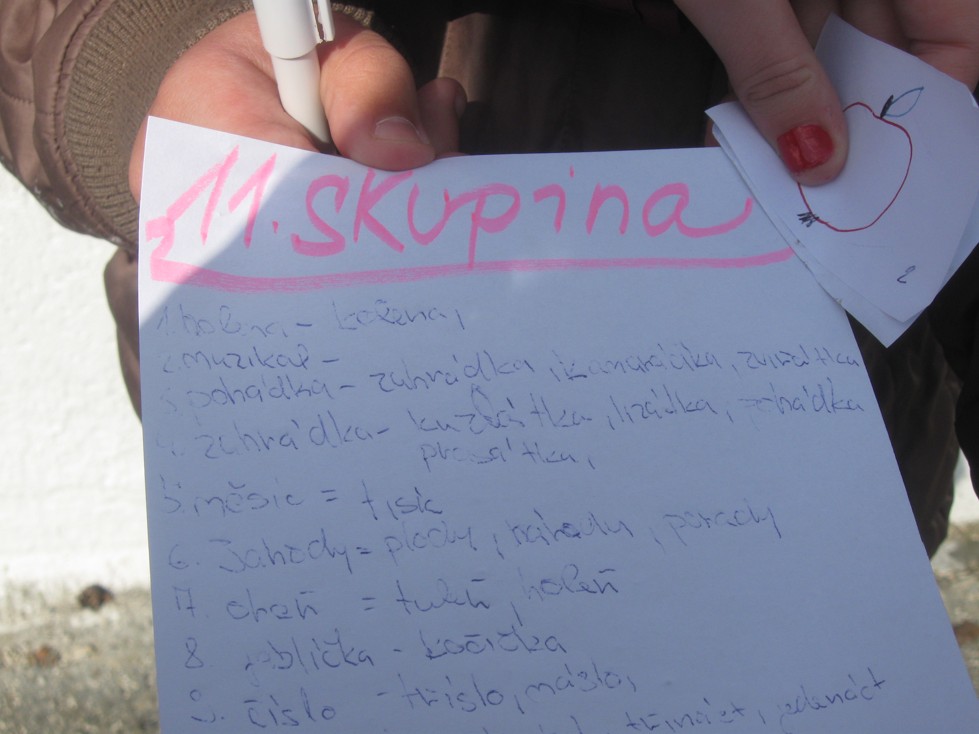 11. Skupina
2
1. holena - kořena,
2. muzikař -
3. pohádka - zahrádka, kamarádka, zvířátka
4. zahrádka - kuzlátka, lízádka, pohádka
prasátka,
5. měsíc = tisk
6. Jahody = plody, náhody, porady
7. oheň = tuleň, holeň
8. jablíčka - kočička
9. číslo - tříslo, máslo,
třináct, jedenáct